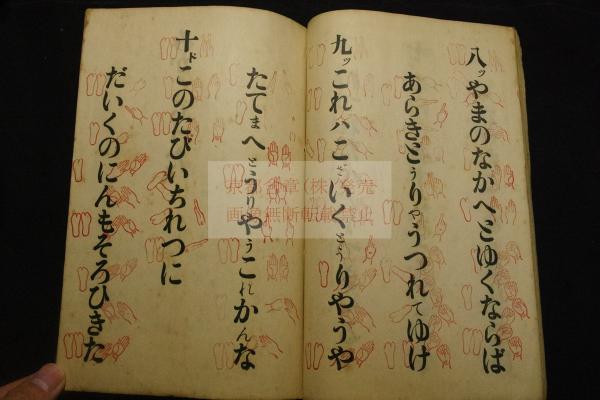 八ッやまのなかへとゆくならば
あらきとうりやうつれてゆけ
九ッこれハこざいくとうりやうや
たてまへとうりやうこれかんな
十ドこのたびいちれつに
だいくのにんもそろひきた
画像無断転載禁止